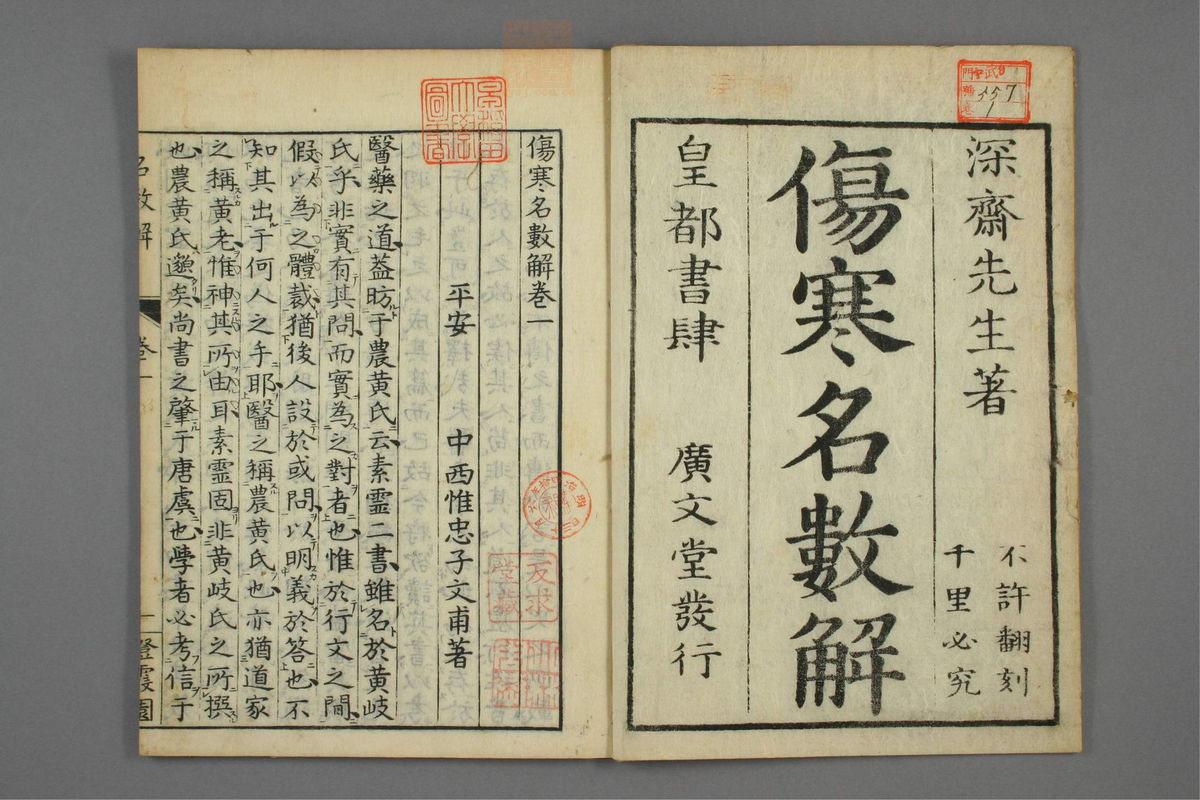 深齋先生著
不許翻刻
千里必究
傷寒名數解
皇都書肆 廣文堂發行
557
1
傷寒名數解卷一
平安 中西惟忠子文甫著
醫藥之道葢昉于農黃氏云素靈二書雖名於黃岐
氏乎非實有其問而實為之對者也惟於行文之間
假以為之體裁猶後人設於或問以明義於答也不
知其出于何人之手耶醫之稱農黃氏也亦猶道家
之稱黃老惟神其所由耳素靈固非黃岐氏之所撰
也農黃氏邈矣尚書之肇于唐虞也學者必考信于
名數解 卷一 一